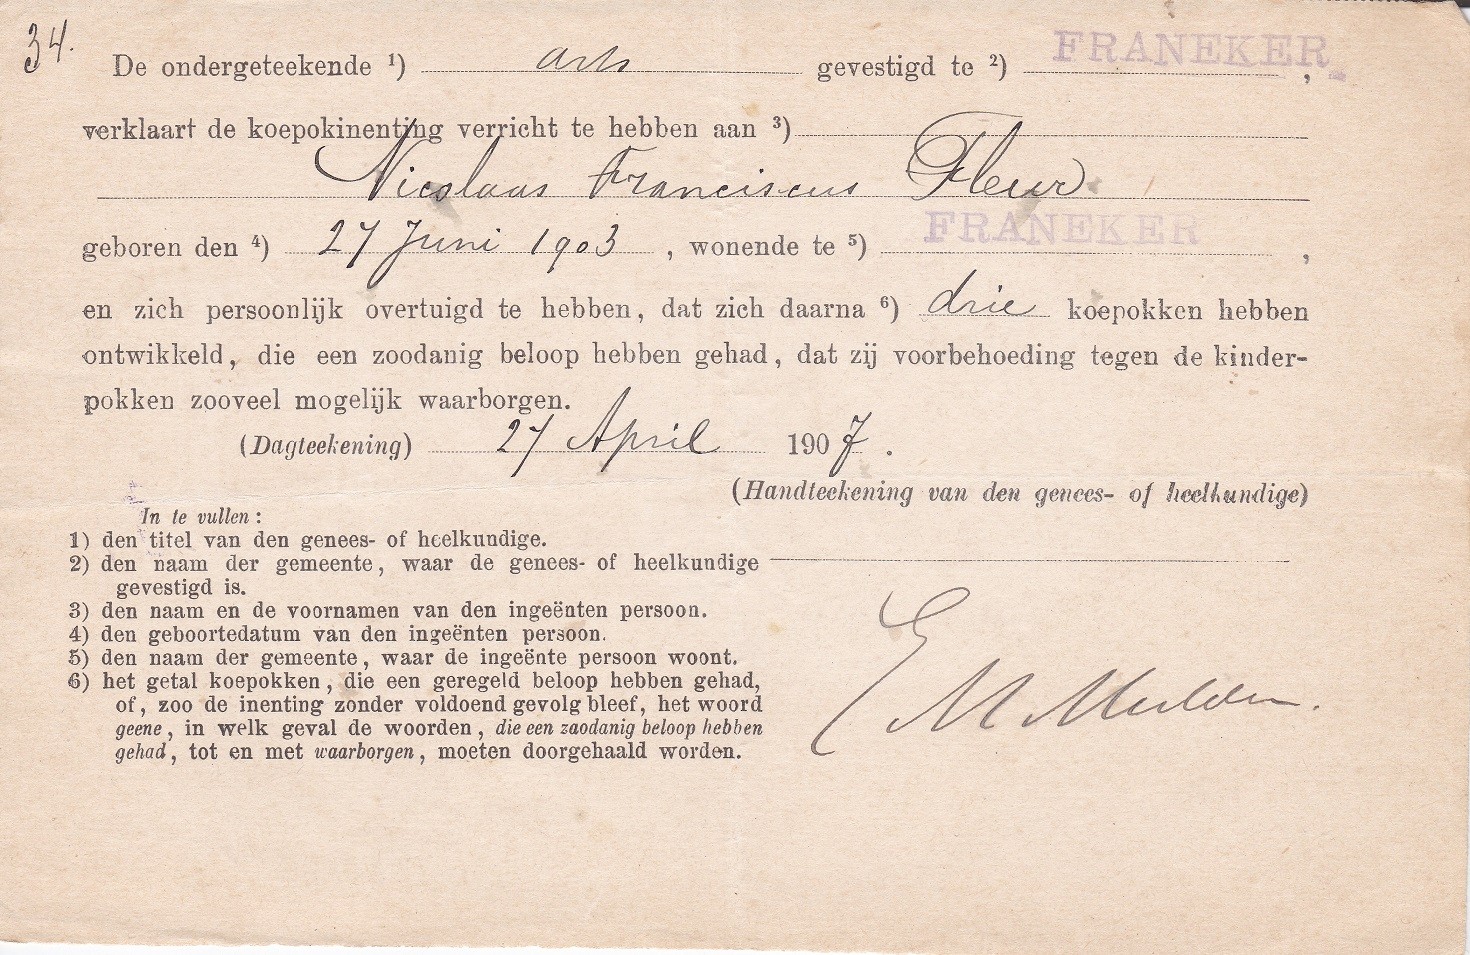 34.
De ondergeteekende ¹) arts gevestigd te ²) FRANEKER,
verklaart de koepokinenting verricht te hebben aan ³)
Nicolaas Franciscus Fleur
geboren den ⁴) 27 Juni 1903, wonende te ⁵) FRANEKER,
en zich persoonlijk overtuigd te hebben, dat zich daarna ⁶) drie koepokken hebben
ontwikkeld, die een zoodanig beloop hebben gehad, dat zij voorbehoeding tegen de kinder-
pokken zooveel mogelijk waarborgen.
(Dagteekening) 27 April 1907.
(Handteekening van den genees- of heelkundige)
In te vullen:
1) den titel van den genees- of heelkundige.
2) den naam der gemeente, waar de genees- of heelkundige
gevestigd is.
3) den naam en de voornamen van den ingeënten persoon.
4) den geboortedatum van den ingeënten persoon.
5) den naam der gemeente, waar de ingeënte persoon woont.
6) het getal koepokken, die een geregeld beloop hebben gehad,
of, zoo de inenting zonder voldoend gevolg bleef, het woord
geene, in welk geval de woorden, die een zaodanig beloop hebben
gehad, tot en met waarborgen, moeten doorgehaald worden.
M Mulder.